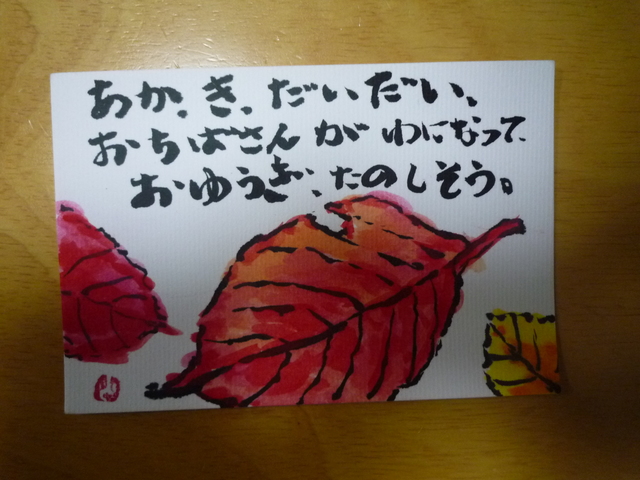 あか、き、だいだい、
おちばさんが わになって、
おゆうぎ、たのしそう。